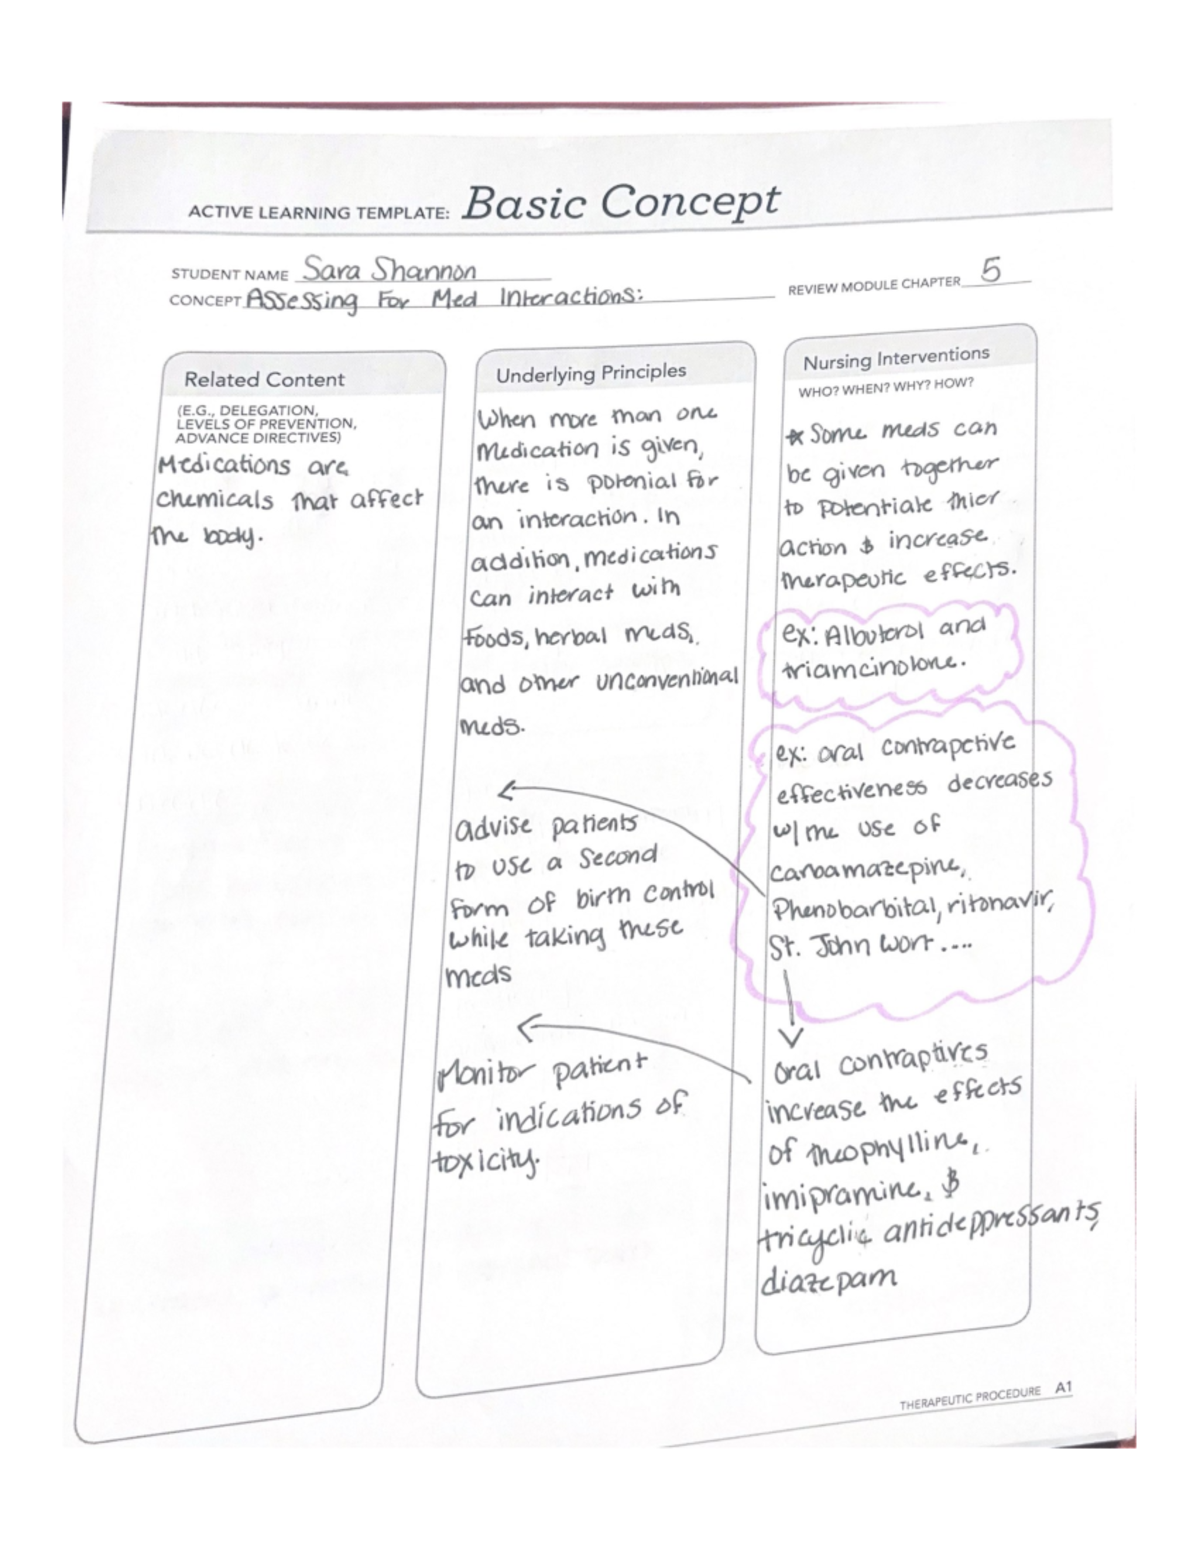 ACTIVE LEARNING TEMPLATE: Basic Concept
STUDENT NAME Sara Shannon
CONCEPT Assessing For Med Interactions:
REVIEW MODULE CHAPTER 5
Related Content
(E.G., DELEGATION,
LEVELS OF PREVENTION,
ADVANCE DIRECTIVES)
Medications are
chemicals that affect
the body.
Underlying Principles
When more than one
Medication is given,
there is potenial for
an interaction. In
addition, medications
can interact with
foods, herbal meds,
and other unconventional
meds.
advise patients
to use a second
form of birth control
while taking these
meds
Monitor patient
for indications of
toxicity.
Nursing Interventions
WHO? WHEN? WHY? HOW?
* Some meds can
be given together
to potentiate thier
action & increase
therapeutic effects.
ex: Albuterol and
triamcinolone.
ex: oral contrapctive
effectiveness decreases
w/ the use of
carbamazepine,
Phenobarbital, ritonavir,
St. John wort....
oral contraptives
increase the effects
of theophylline,
imipramine, &
tricyclic antideppressants,
diazepam
THERAPEUTIC PROCEDURE A1